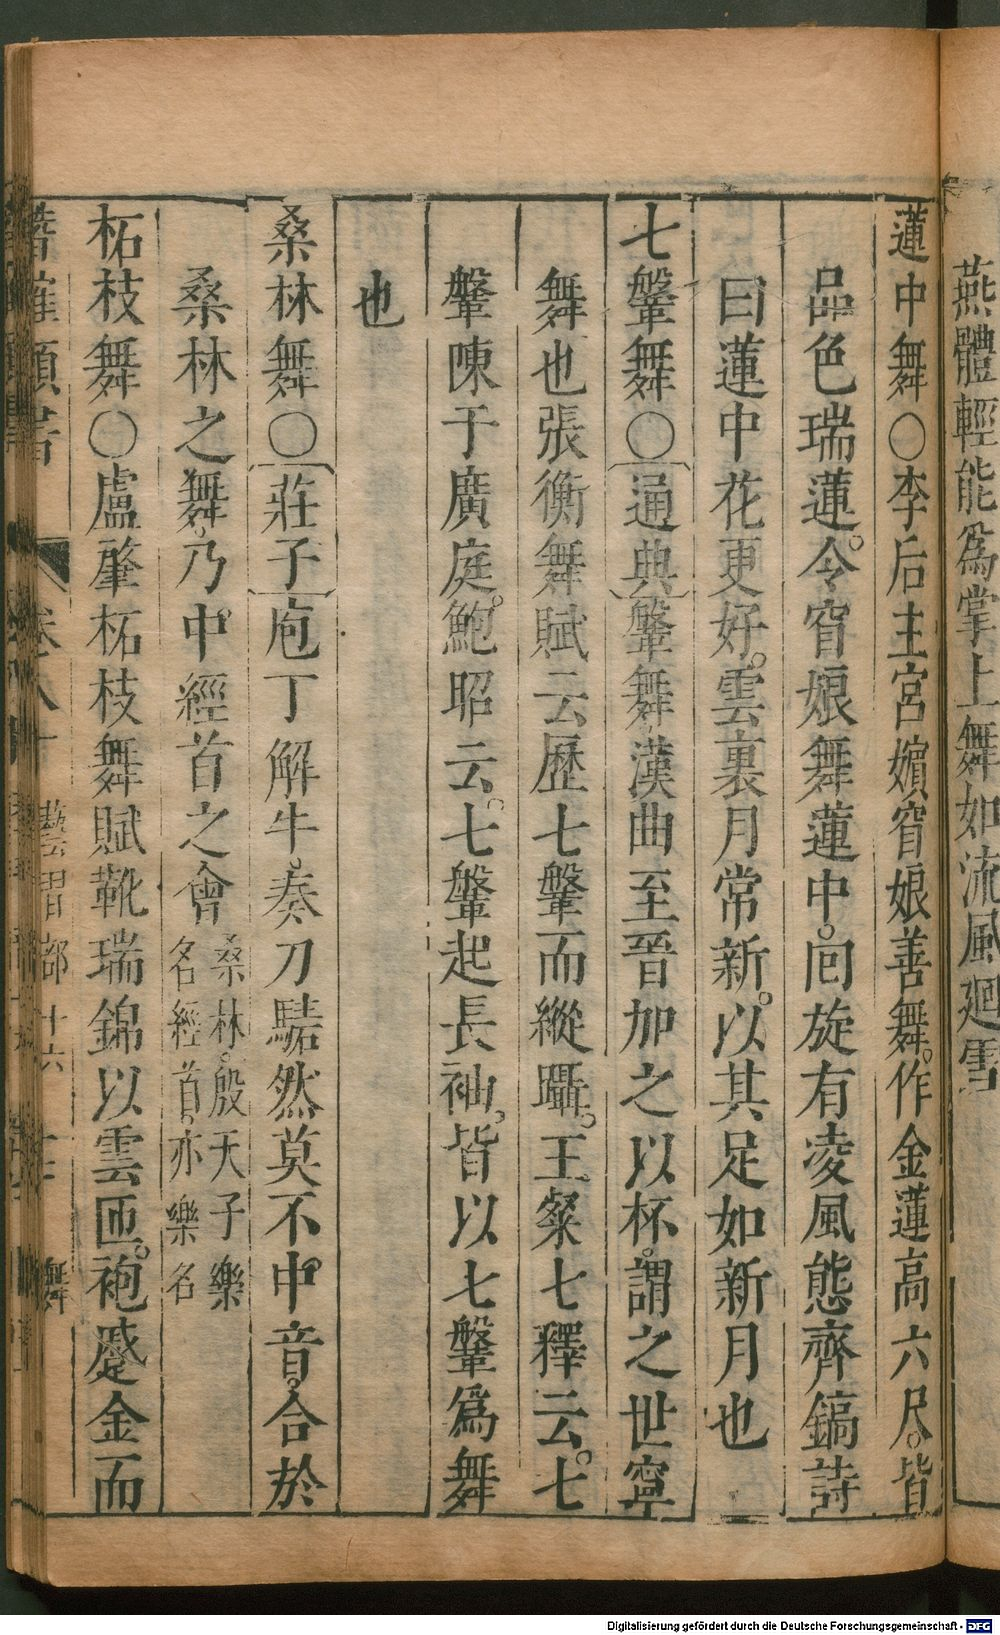 燕體輕能爲掌上舞如流風廻雪
蓮中舞〇李后主宮嬪窅娘善舞。作金蓮高六尺。皆
品色瑞蓮。令窅娘舞蓮中。囘旋有凌風態齊鎬詩
曰蓮中花更好。雲裏月常新。以其足如新月也
七鞶舞〇〔通典〕鞶舞漢曲至晉加之以杯。謂之世寧
舞也張衡舞賦云歷七鞶而縱躡。王粲七釋云。七
鞶陳于廣庭。鮑昭云。七鞶起長袖。皆以七鞶爲舞
也
桑林舞〇〔莊子〕庖丁解牛。奏刀騞然莫不中音。合於
桑林之舞。乃中經首之會桑林。殷天子樂
名經首。亦樂名
柘枝舞〇盧肇柘枝舞賦靴瑞錦以雲匝。袍蹙金而
卷八十
藝習部十六
舞
Digitalisierung gefördert durch die Deutsche Forschungsgemeinschaft - DFG